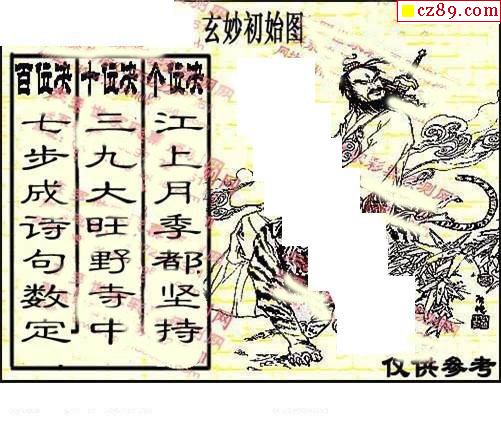 cz89.com
玄妙初始图
百位决 十位决 个位决
七步成诗句数定
三九大旺野寺中
江上月季都坚持
仅供参考